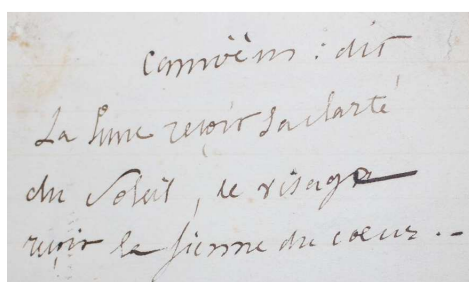 Camoëns : dit
La lune reçoit sa clarté
du Soleil, le visage
reçoit la sienne du coeur. -